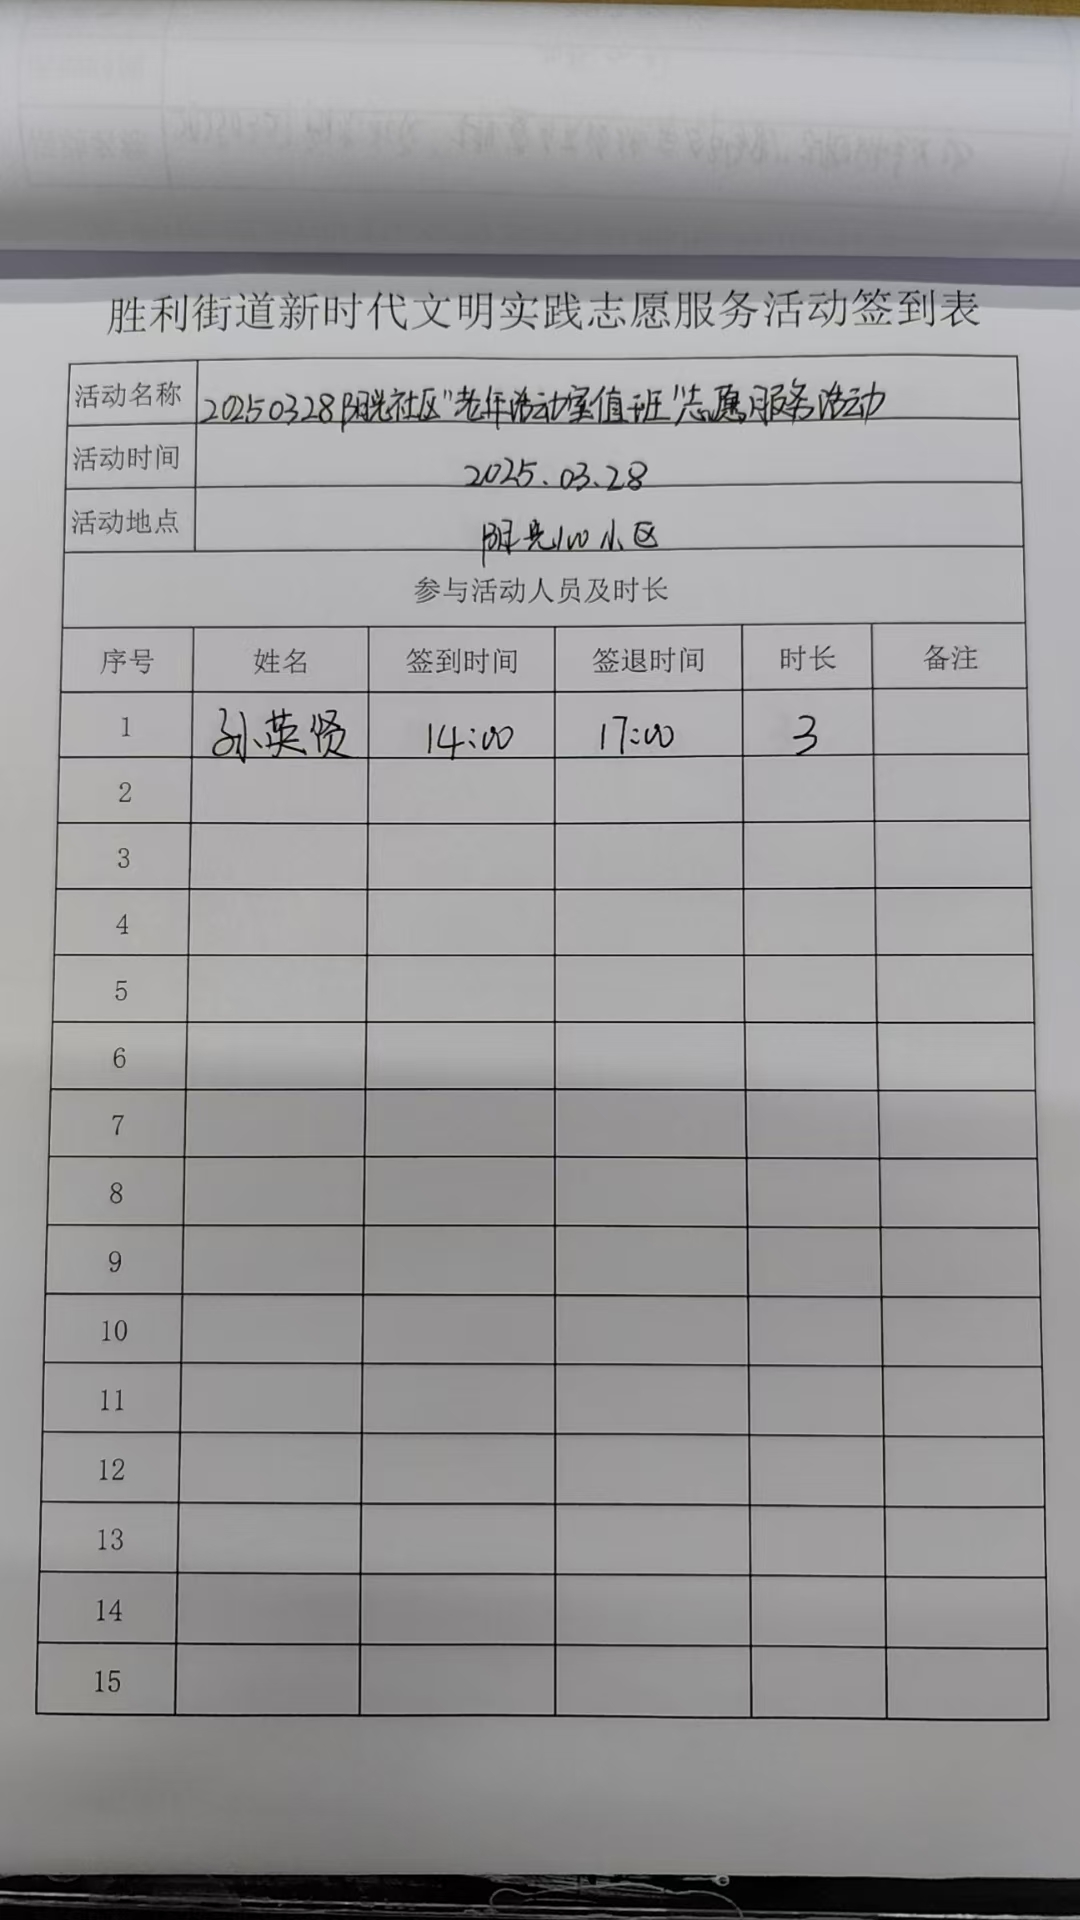 胜利街道新时代文明实践志愿服务活动签到表
活动名称 20250328阳光社区"老年活动室值班"志愿服务活动
活动时间 2025.03.28
活动地点 阳光100小区
参与活动人员及时长
序号 姓名 签到时间 签退时间 时长 备注
1 孙英贤 14:00 17:00 3
2
3
4
5
6
7
8
9
10
11
12
13
14
15